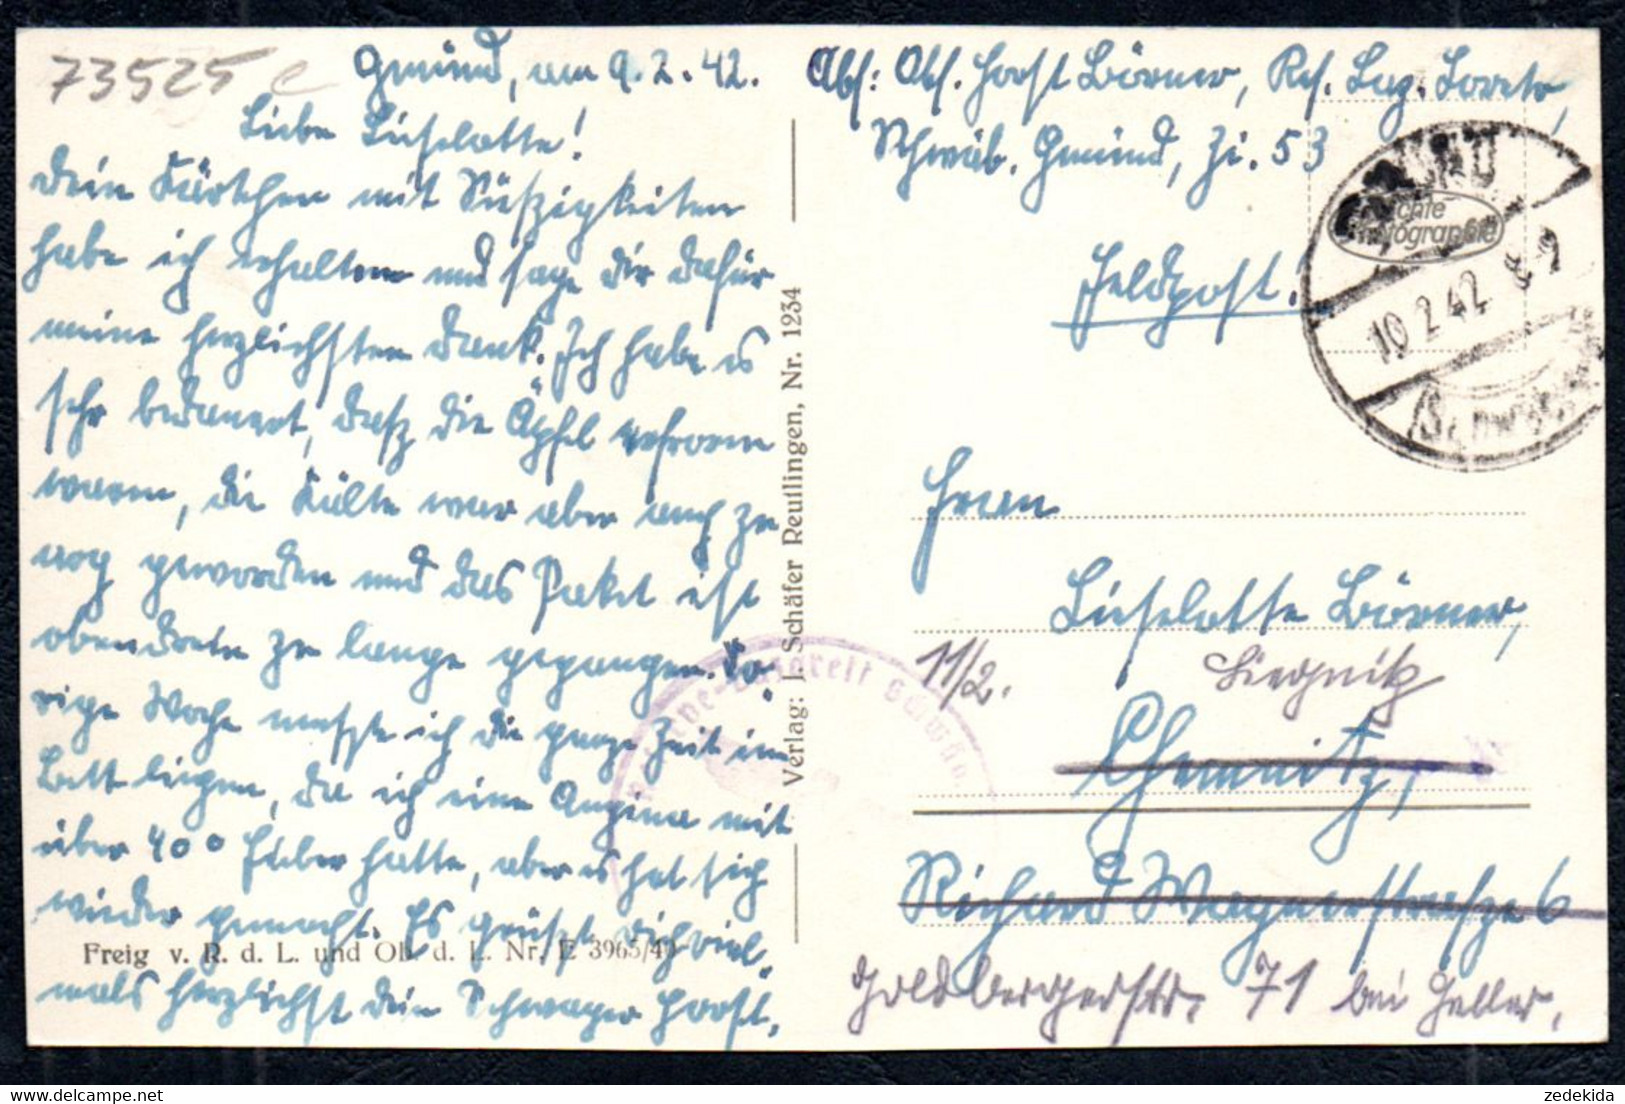 73525 c
Gmünd, am 9.2.42.
Liebe Lieselotte!
Dein Kärtchen mit Süßigkeiten
habe ich erhalten und sage Dir dafür
meine herzlichsten Dank. Ich habe es
sehr bedauert, dasz die Äpfel erfroren
waren, die Kälte war aber auch zu
arg geworden und das Paket ist
obendrein zu lange gegangen. Vo-
rige Woche muszte ich die ganze Zeit im
Bett liegen, da ich eine Angina mit
über 40° Fieber hatte, aber es hat sich
wieder gemacht. Es grüszt Dich viel-
mals herzlichst Dein Schwager Horst.
Freig v. R. d. L. und Ob. d. L. Nr. E 3965/40
Verlag: J. Schäfer Reutlingen, Nr. 1234
Abs: Horst Börner, Res. Laz. Loreto,
Schwäb. Gmünd, Zi. 53
Feldpost!
Echte
Photographie
GMÜND
10.2.42 8-9
(Schwäb.
Frau
Lieselotte Börner,
11/2.
Liegnitz
Chemnitz,
Richard Wagnerstrasze 6
Goldbergerstr. 71 bei Heller,
Reserve-Lazarett Schwäb.
zedekida